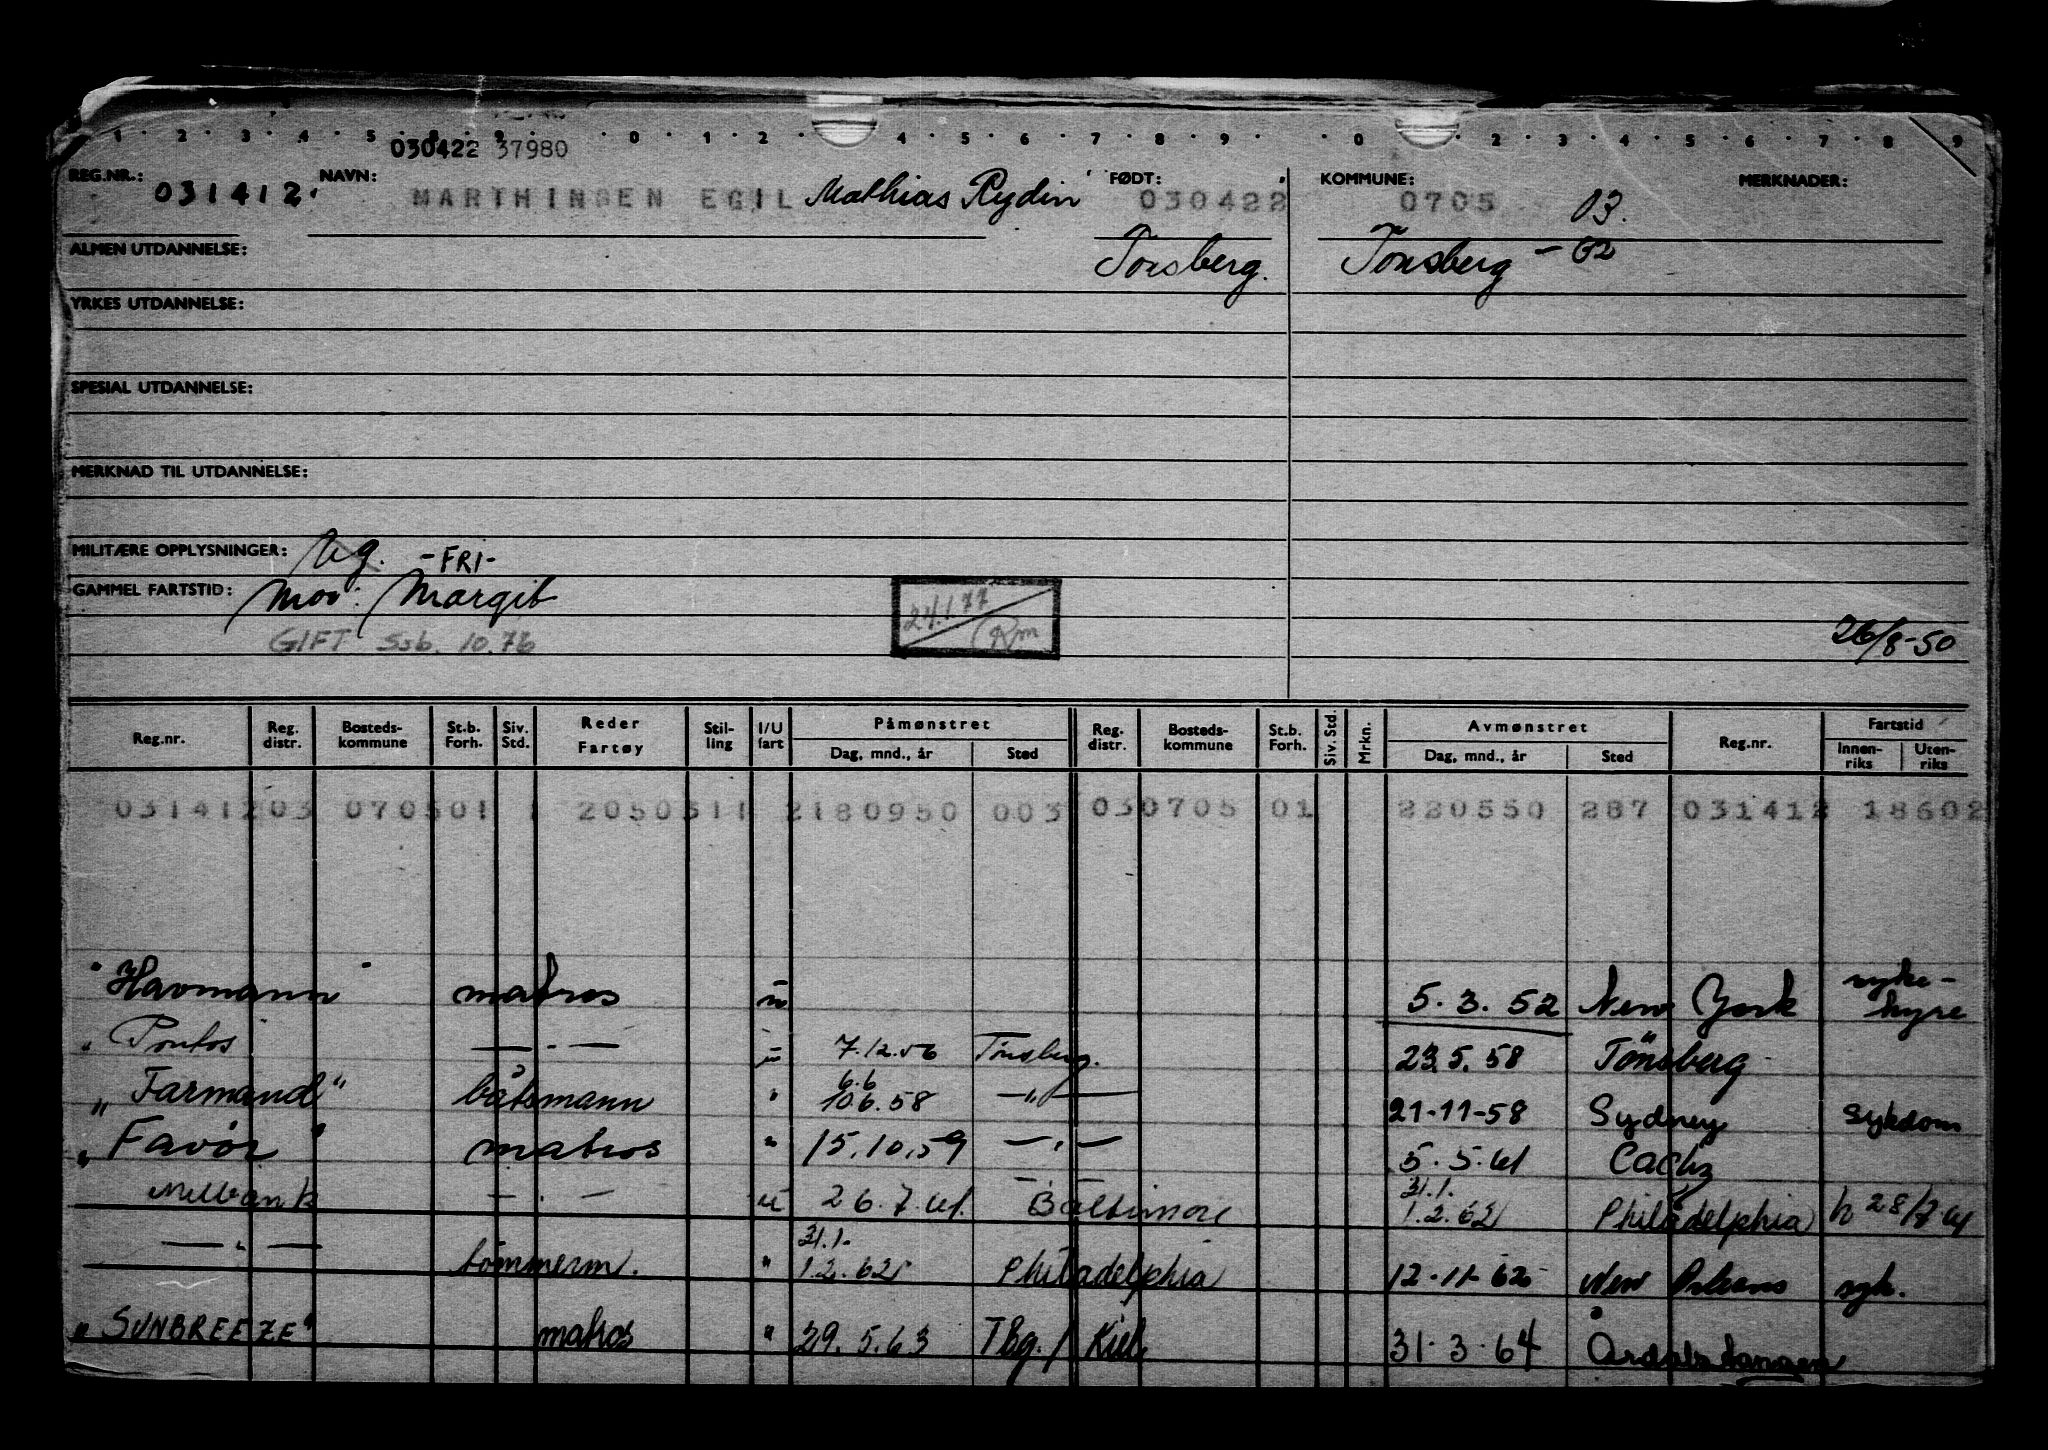 1 · 2 · 3 · 4 · 5 · 8 · 9 · 0 · 1 · 2 · 4 · 5 · 6 · 7 · 8 · 9 · 0 · 2 · 3 · 4 · 5 · 6 · 7 · 8 · 9
030422 37980
REG.NR.: 031412 NAVN: MARTHINSEN EGIL Mathias Rydin FØDT: 030422 KOMMUNE: 0705 03. MERKNADER:
ALMEN UTDANNELSE: Tönsberg. Tönsberg - 02
YRKES UTDANNELSE:
SPESIAL UTDANNELSE:
MERKNAD TIL UTDANNELSE:
MILITÆRE OPPLYSNINGER: Ug. -FRI-
GAMMEL FARTSTID: Mor: Margit
24.1.77
GIFT Ssb. 10.76 Rm 26/8-50
Reg.nr. Reg. distr. Bosteds-kommune St.b. Forh. Siv. Std. Reder Fartøy Stil-ling I/U fart Påmønstret Dag, mnd., år Sted Reg. distr. Bosteds-kommune St.b. Forh. Siv. Std. Mrkn. Avmønstret Dag, mnd., år Sted Reg.nr. Fartstid Innen-riks Uten-riks
03141203 070501 1 2050311 2180950 003 030705 01 220550 287 031412 18602
"Havmann" matros u 5.3.52 New York syke-
hyre
" Pontos — . — u 7.12.56 Tönsberg. 23.5.58 Tönsberg
6.6
" Farmand" båtsmann " 10.6.58 — " — 21-11-58 Sydney sykdom
" Favör " matros " 15.10.59 — " — 5.5.61 Cadiz
31.1.
Melbank — . — u 26.7.61. Baltimore 1.2.62 Philadelphia h 28/7 61
31.1.
— " — tömmerm. " 1.2.62 Philadelphia 12-11-62 New Orleans syk.
"SUNBREEZE" matros " 29.5.63 TBg. / Kiel 31.3.64 Årdalstangen